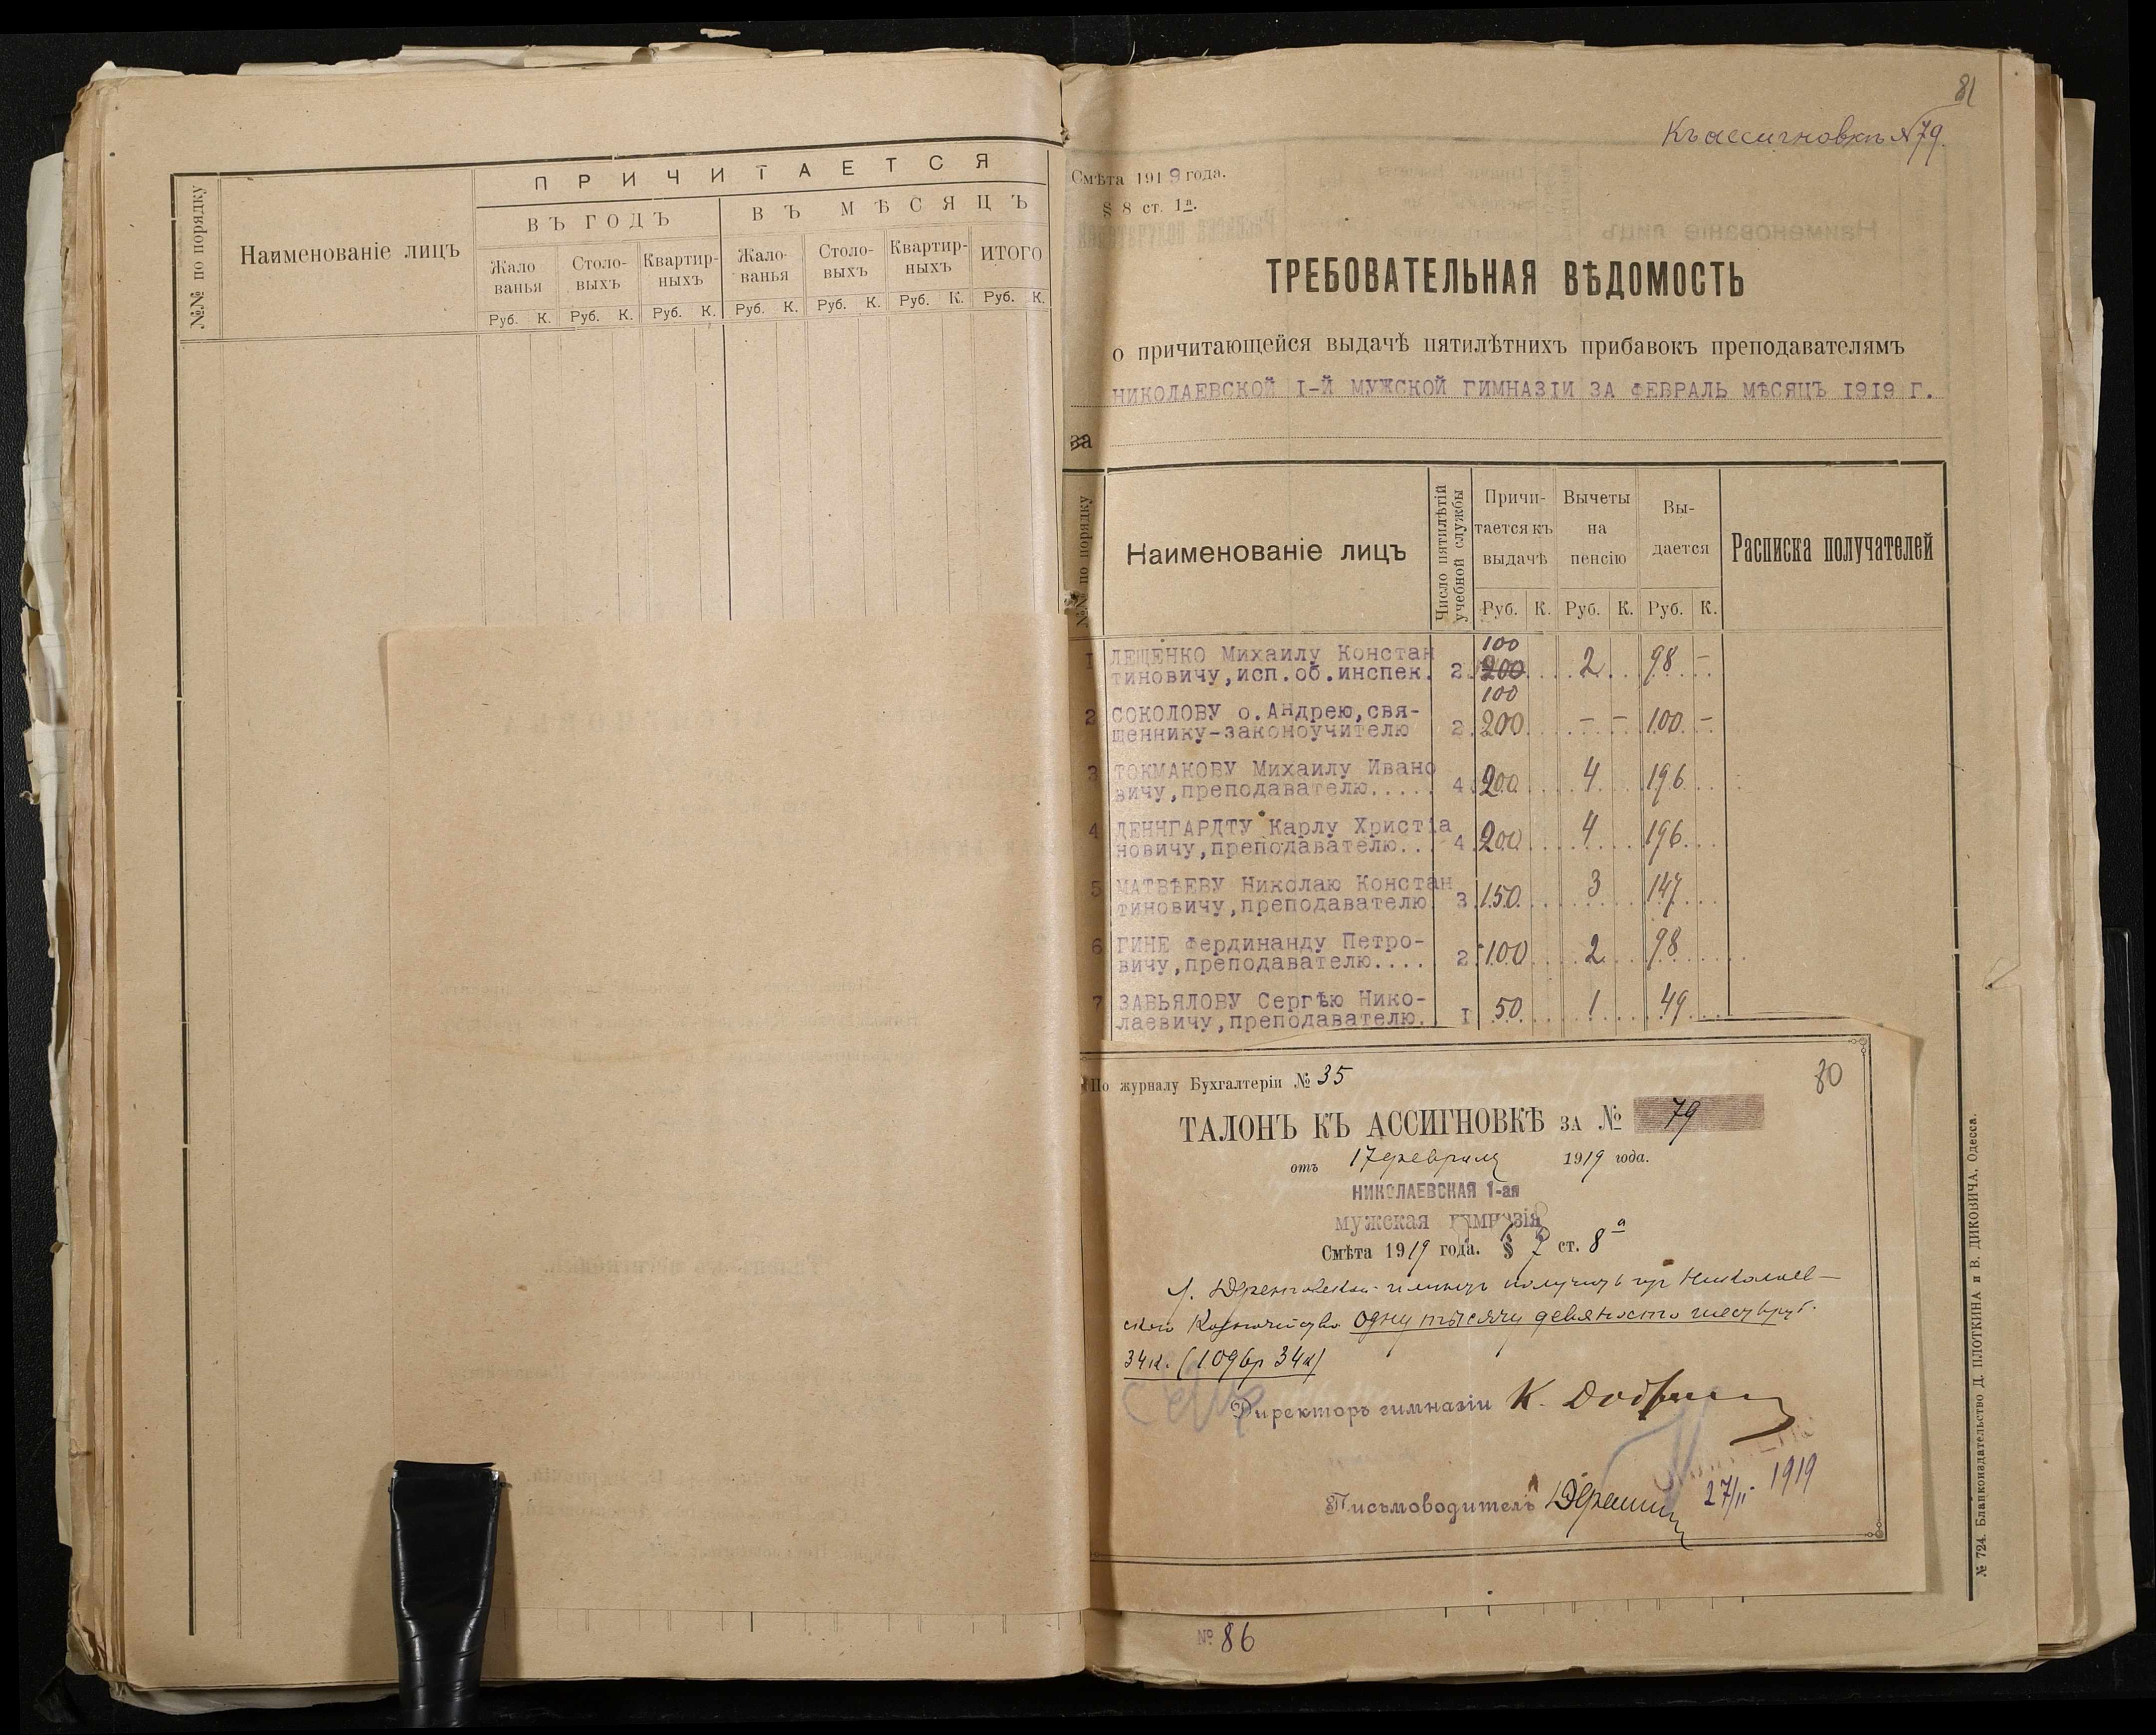 №№ по порядку
Наименованіе лицъ
ПРИЧИТАЕТСЯ
ВЪ ГОДЪ
ВЪ МѢСЯЦЪ
Жало
ванья
Столо-
выхъ
Квартир-
ныхъ
Жало-
ванья
Столо-
выхъ
Квартир-
ныхъ
ИТОГО
Руб. К. Руб. К. Руб. К. Руб. К. Руб. К. Руб. К. Руб. К.
81
Къ ассигновкѣ № 79.
Смѣта 1919 года.
§ 8 ст. 1а.
ТРЕБОВАТЕЛЬНАЯ ВѢДОМОСТЬ
о причитающейся выдачѣ пятилѣтнихъ прибавокъ преподавателямъ
НИКОЛАЕВСКОЙ I-Й МУЖСКОЙ ГИМНАЗІИ ЗА ФЕВРАЛЬ МѢСЯЦЪ 1919 Г.
за
№№ по порядку
Наименованіе лицъ
Число пятилѣтій
учебной службы
Причи-
тается къ
выдачѣ
Вычеты
на
пенсію
Вы-
дается
Расписка получателей
Руб. К. Руб. К. Руб. К.
100
1 ЛЕЩЕНКО Михаилу Констан
тиновичу,исп.об.инспек. 2 200 2 98 -
100
2 СОКОЛОВУ о.Андрею,свя-
щеннику-законоучителю 2 200 - - 100 -
3 ТОКМАКОВУ Михаилу Ивано
вичу,преподавателю..... 4 200 4 196
4 ДЕННГАРДТУ Карлу Христіа
новичу,преподавателю... 4 200 4 196
5 МАТВѢЕВУ Николаю Констан
тиновичу,преподавателю 3 150 3 147
6 ГИНЕ Фердинанду Петро-
вичу,преподавателю.... 2 100 2 98
7 ЗАВЬЯЛОВУ Сергѣю Нико-
лаевичу,преподавателю. I 50 1 49
По журналу Бухгалтеріи № 35
80
ТАЛОНЪ КЪ АССИГНОВКѢ ЗА № 79
отъ 17 февраля 1919 года.
НИКОЛАЕВСКАЯ 1-ая
мужская гимназія
Смѣта 1919 года. § 7 ст. 8а
имѣетъ получить изъ Николаев-
скаго Казначейства одну тысячу девяносто шесть руб.
34 к. (1096р 34к)
Директоръ гимназіи К.
Письмоводитель
27/II 1919
№ 86
№ 724. Бланкоиздательство Д. ПЛОТКИНА и В. ДИКОВИЧА, Одесса.